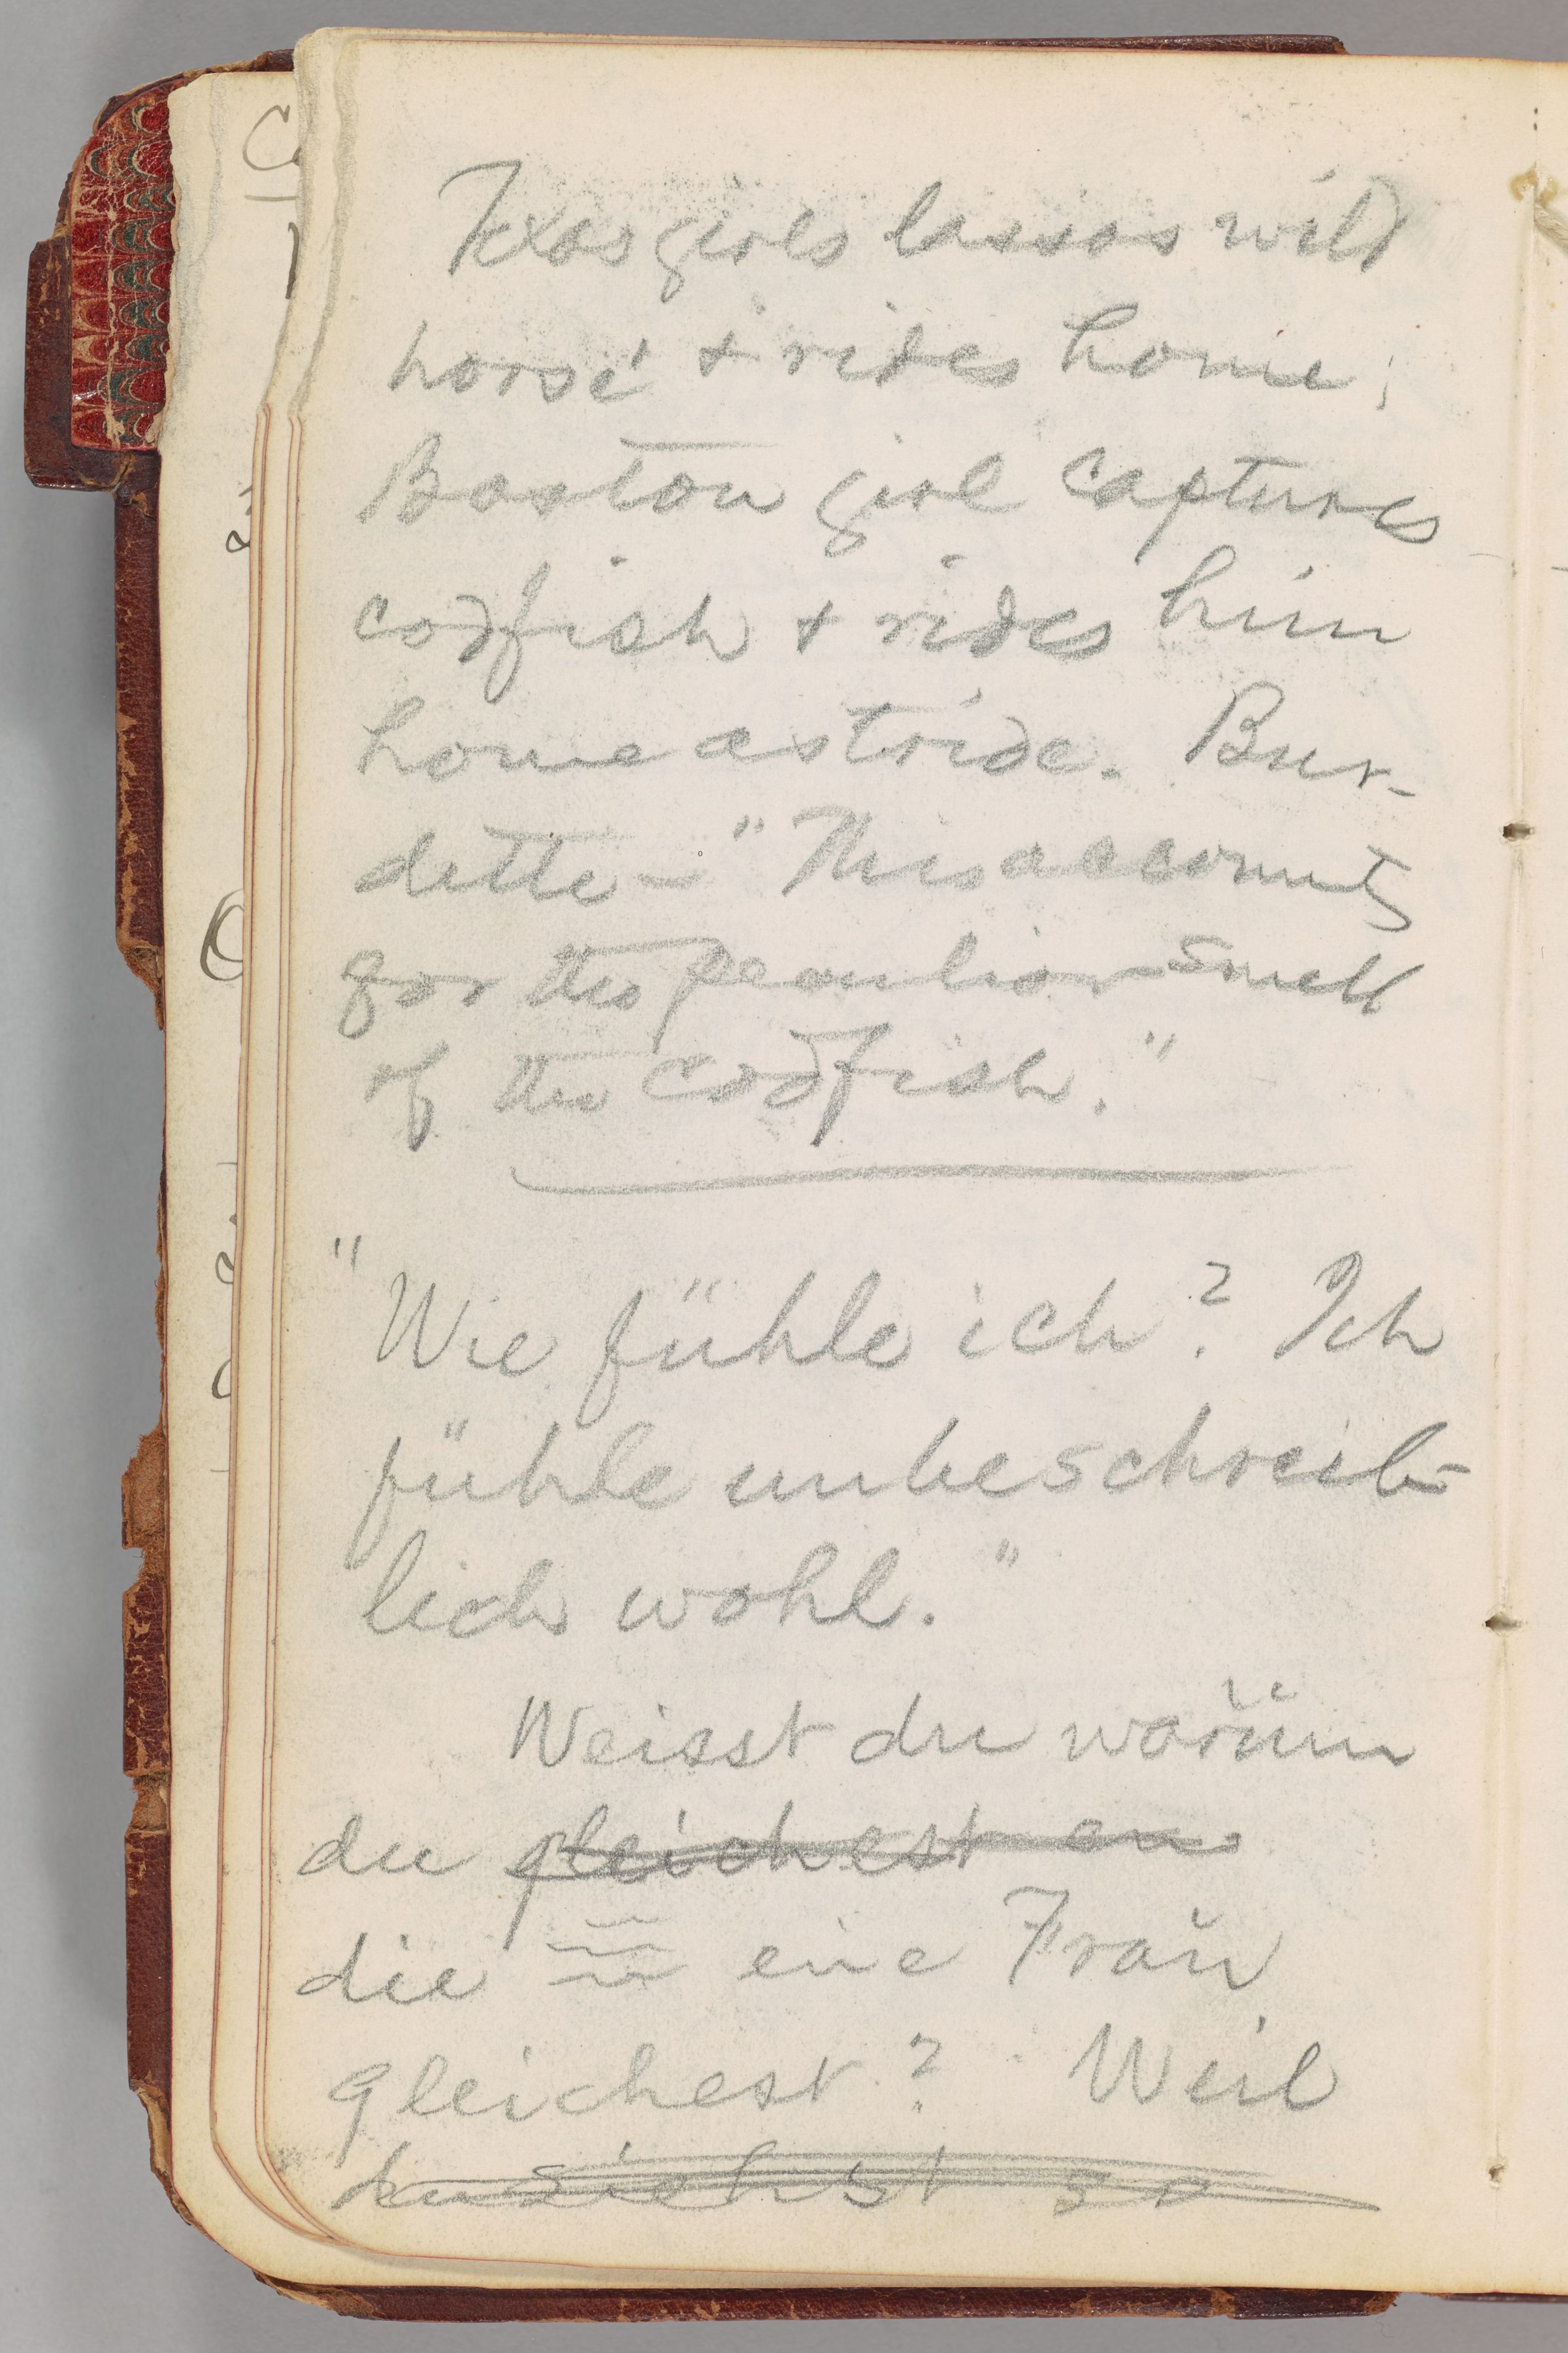 Texas girls lassos wild
horse & rides home;
Boston girl captures
codfish & rides him
home astride. Bur-
dette — "This accounts
for the peculiar smell
of the codfish."
"Wie fühle ich? Ich
fühle unbeschreib-
lich wohl."
Weisst du warŭm
du gleichest an
die eine Fraŭ
gleichest? Weil
du siehst so